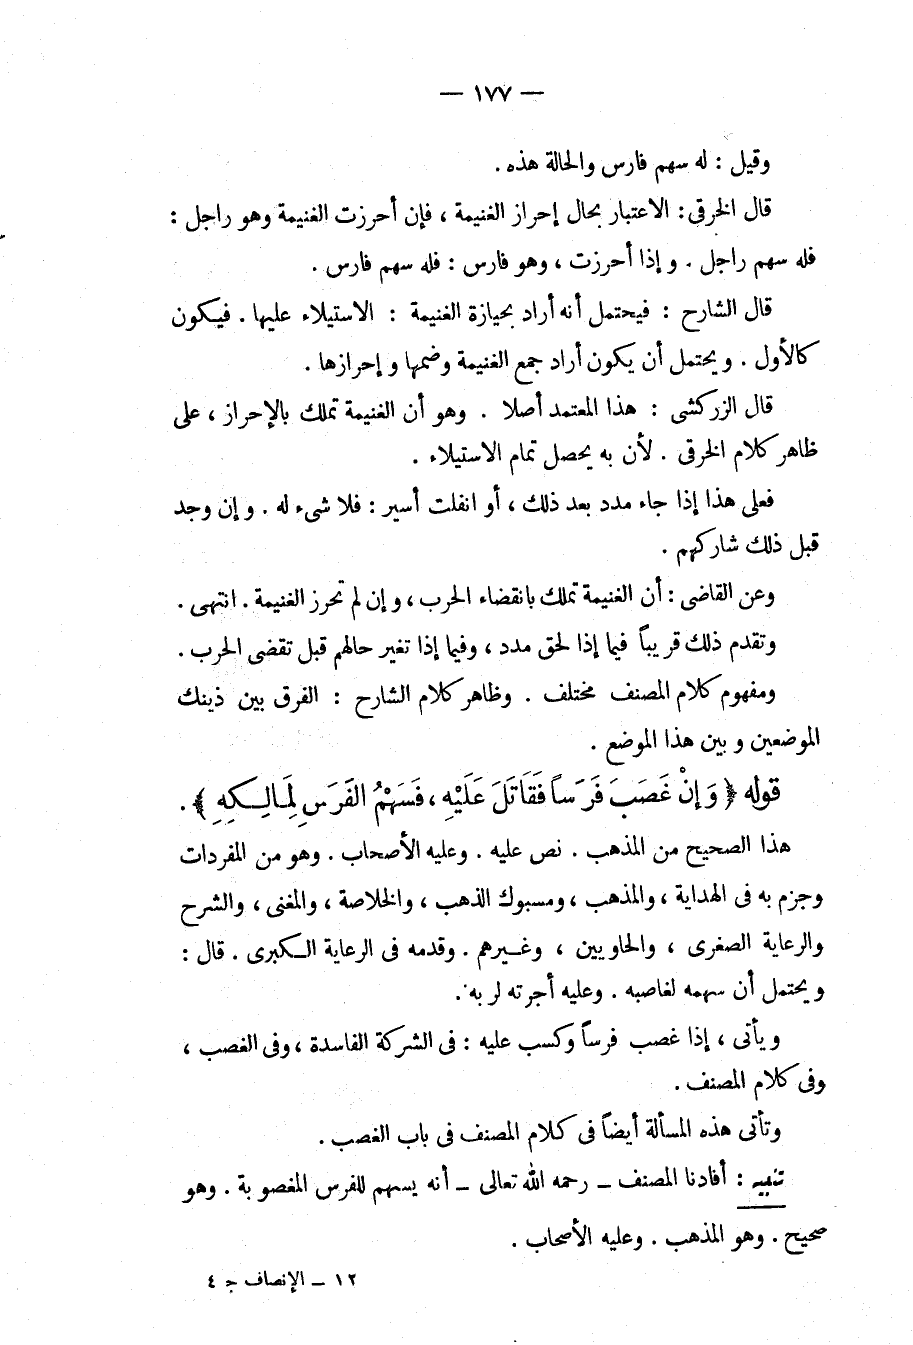 — ١٧٧ —
وقيل : له سهم فارس والحالة هذه .
قال الخرقى : الاعتبار بحال إحراز الغنيمة ، فإن أحرزت الغنيمة وهو راجل :
فله سهم راجل . وإذا أحرزت ، وهو فارس : فله سهم فارس .
قال الشارح : فيحتمل أنه أراد بحيازة الغنيمة : الاستيلاء عليها . فيكون
كالأول . ويحتمل أن يكون أراد جمع الغنيمة وضمها وإحرازها .
قال الزركشى : هذا المعتمد أصلا . وهو أن الغنيمة تملك بالإحراز ، على
ظاهر كلام الخرقى . لأن به يحصل تمام الاستيلاء .
فعلى هذا إذا جاء مدد بعد ذلك ، أو انفلت أسير : فلا شىء له . وإن وجد
قبل ذلك شاركهم .
وعن القاضى : أن الغنيمة تملك بانقضاء الحرب ، وإن لم تحرز الغنيمة . انتهى .
وتقدم ذلك قريباً فيما إذا لحق مدد ، وفيما إذا تغير حالهم قبل تقضى الحرب .
ومفهوم كلام المصنف مختلف . وظاهر كلام الشارح : الفرق بين ذينك
الموضعين وبين هذا الموضع .
قوله ﴿ وَإِنْ غَصَبَ فَرَساً فَقَاتَلَ عَلَيْهِ ، فَسَهْمُ الفَرَسِ لِمَالِكِهِ ﴾ .
هذا الصحيح من المذهب . نص عليه . وعليه الأصحاب . وهو من المفردات
وجزم به فى الهداية ، والمذهب ، ومسبوك الذهب ، والخلاصة ، والمغنى ، والشرح
والرعاية الصغرى ، والحاويين ، وغيرهم . وقدمه فى الرعاية الكبرى . قال :
ويحتمل أن سهمه لغاصبه . وعليه أجرته لربه .
ويأتى ، إذا غصب فرساً وكسب عليه : فى الشركة الفاسدة ، وفى الغصب ،
وفى كلام المصنف .
وتأتى هذه المسألة أيضاً فى كلام المصنف فى باب الغصب .
تنبيه : أفادنا المصنف ــ رحمه الله تعالى ــ أنه يسهم للفرس المغصوبة . وهو
صحيح . وهو المذهب . وعليه الأصحاب .
١٢ ــ الإنصاف ج ٤